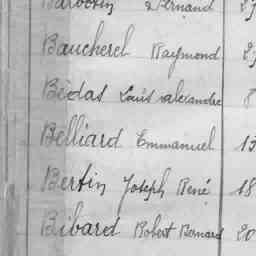 Fernand
Baucherel Raymond
Bédas Louis Alexandre 8
Belliard Emmanuel 15
Bertin Joseph René 18
Bibard Robert Bernard 20